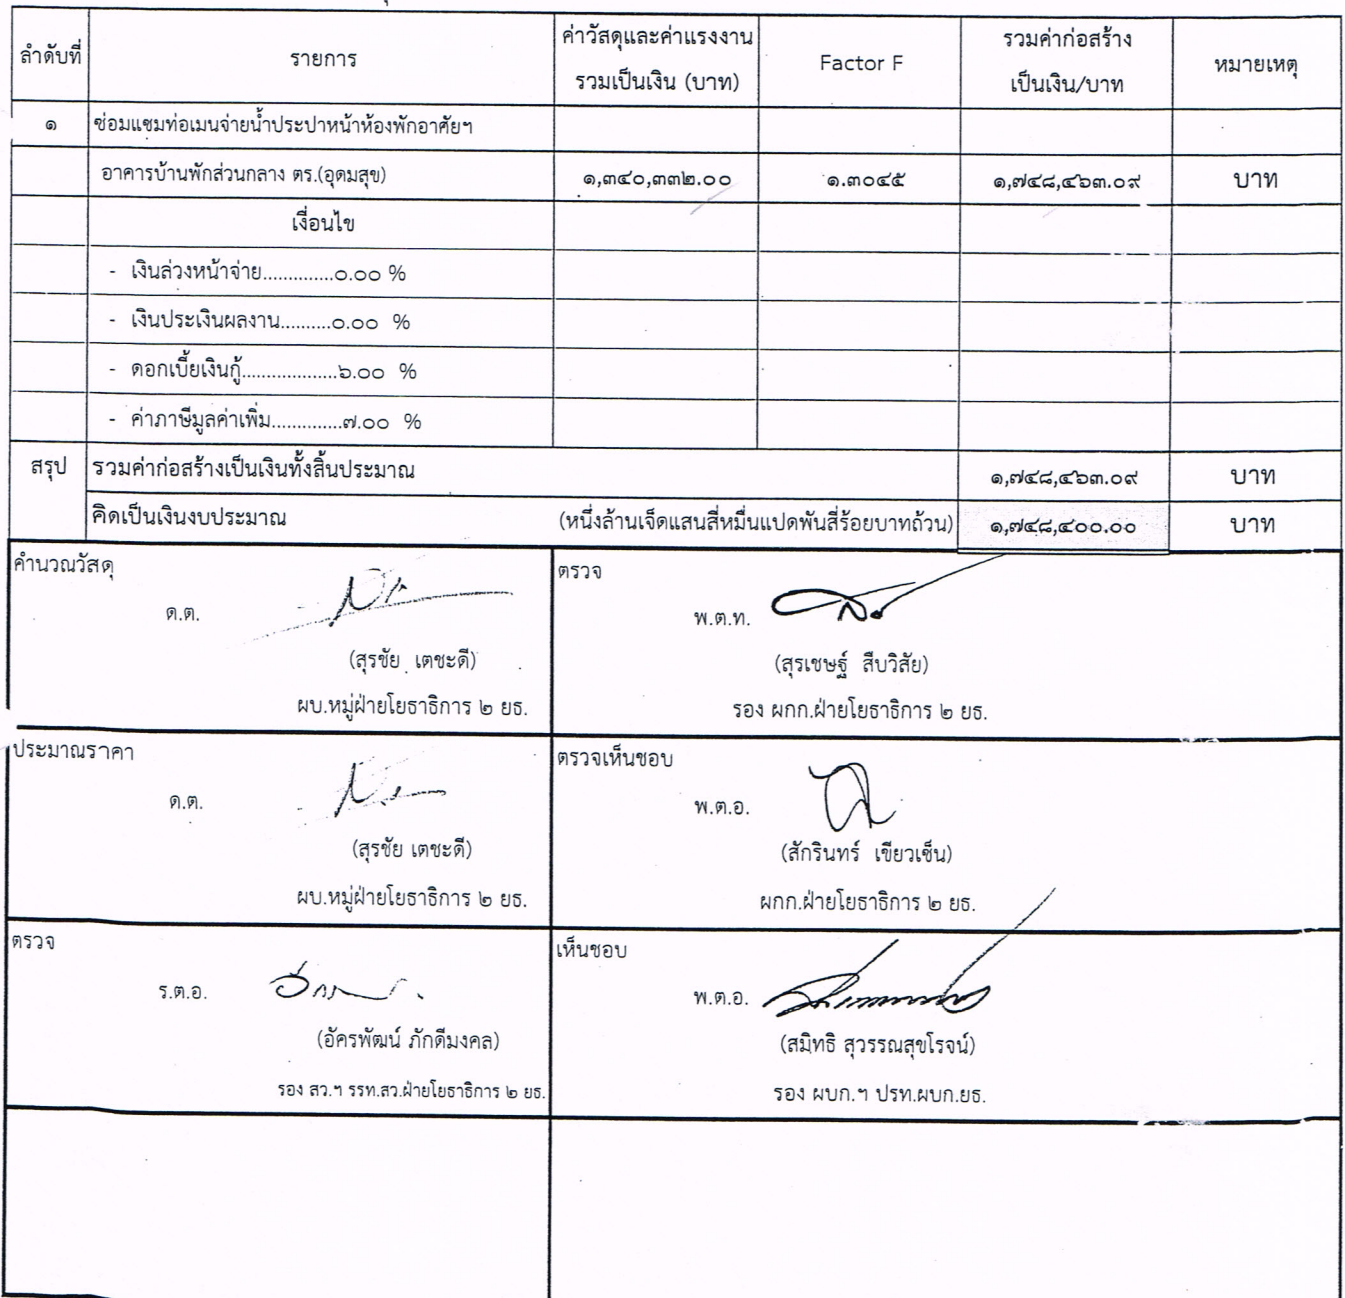 ลำดับที่ รายการ ค่าวัสดุและค่าแรงงาน รวมเป็นเงิน (บาท) Factor F รวมค่าก่อสร้าง เป็นเงิน/บาท หมายเหตุ
๑ ซ่อมแซมท่อเมนจ่ายน้ำประปาหน้าห้องพักอาศัยฯ
อาคารบ้านพักส่วนกลาง ตร.(อุดมสุข) ๑,๓๔๐,๓๓๒.๐๐ ๑.๓๐๔๕ ๑,๗๔๘,๔๖๓.๐๙ บาท
เงื่อนไข
- เงินล่วงหน้าจ่าย..............๐.๐๐ %
- เงินประเงินผลงาน..........๐.๐๐ %
- ดอกเบี้ยเงินกู้...................๖.๐๐ %
- ค่าภาษีมูลค่าเพิ่ม..............๗.๐๐ %
สรุป รวมค่าก่อสร้างเป็นเงินทั้งสิ้นประมาณ ๑,๗๔๘,๔๖๓.๐๙ บาท
คิดเป็นเงินงบประมาณ (หนึ่งล้านเจ็ดแสนสี่หมื่นแปดพันสี่ร้อยบาทถ้วน) ๑,๗๔๘,๔๐๐.๐๐ บาท
คำนวณวัสดุ
ด.ต.
(สุรชัย เตชะดี)
ผบ.หมู่ฝ่ายโยธาธิการ ๒ ยธ.
ตรวจ
พ.ต.ท.
(สุรเชษฐ์ สืบวิสัย)
รอง ผกก.ฝ่ายโยธาธิการ ๒ ยธ.
ประมาณราคา
ด.ต.
(สุรชัย เตชะดี)
ผบ.หมู่ฝ่ายโยธาธิการ ๒ ยธ.
ตรวจเห็นชอบ
พ.ต.อ.
(สักรินทร์ เขียวเซ็น)
ผกก.ฝ่ายโยธาธิการ ๒ ยธ.
ตรวจ
ร.ต.อ.
(อัครพัฒน์ ภักดีมงคล)
รอง สว.ฯ รรท.สว.ฝ่ายโยธาธิการ ๒ ยธ.
เห็นชอบ
พ.ต.อ.
(สมิทธิ สุวรรณสุขโรจน์)
รอง ผบก.ฯ ปรท.ผบก.ยธ.